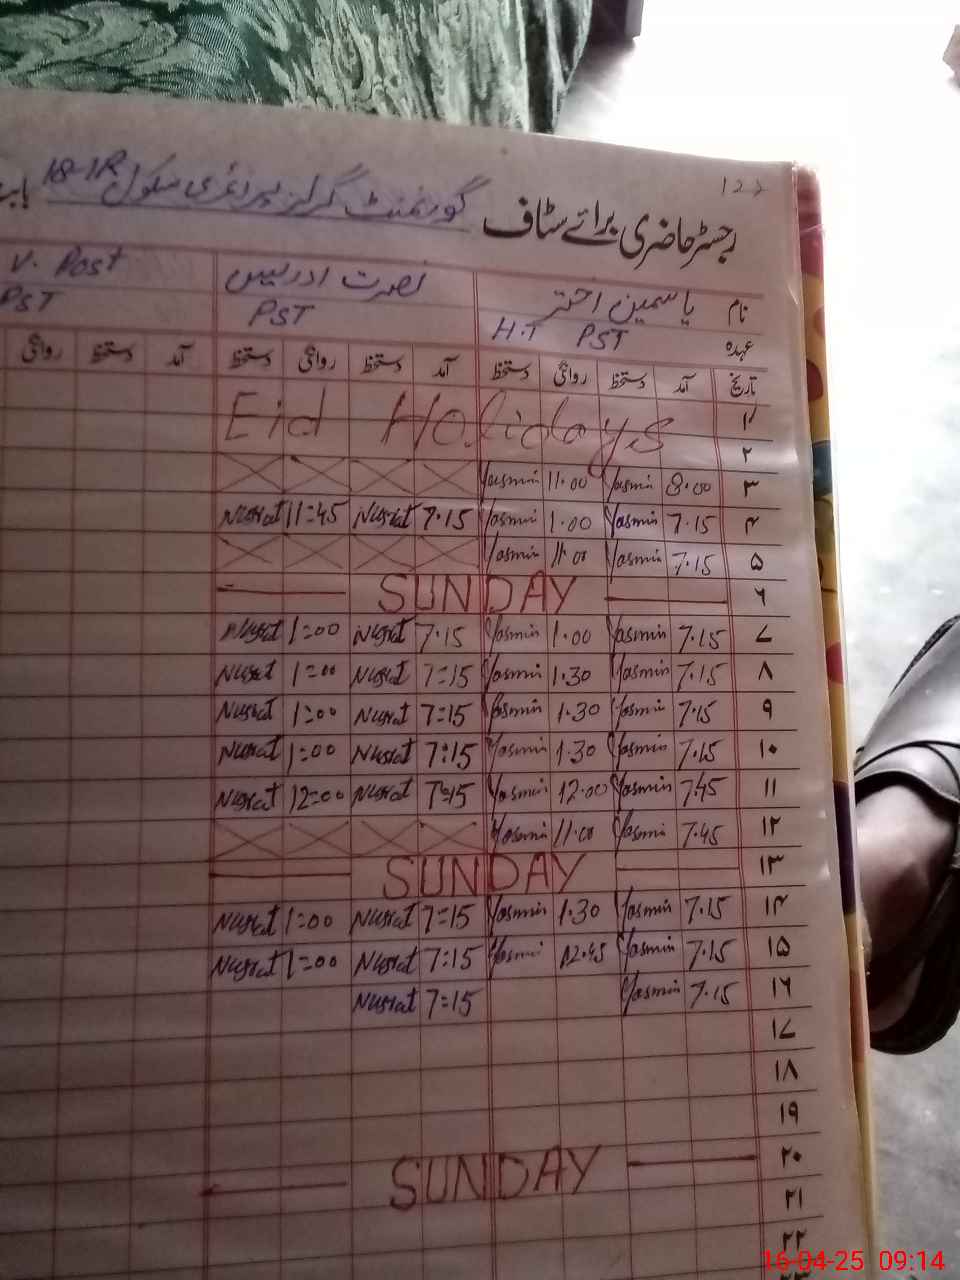 122
رجسٹر حاضری برائے سٹاف گورنمنٹ گرلز پرائمری سکول 18-1R
نام یاسمین اختر نصرت ادریس V. Post
عہدہ H.T PST PST PST
تاریخ آمد دستخط روانگی دستخط آمد دستخط روانگی دستخط آمد دستخط روانگی
۱ Eid Holidays
۲
۳ 8.00 Yasmin 11.00 Yasmin
۴ 7.15 Yasmin 1.00 Yasmin 7.15 Nusrat 11=45 Nusrat
۵ 7.15 Yasmin 11.00 Yasmin
۶ SUNDAY
۷ 7.15 Yasmin 1.00 Yasmin 7.15 Nusrat 1=00 Nusrat
۸ 7.15 Yasmin 1.30 Yasmin 7=15 Nusrat 1=00 Nusrat
۹ 7.15 Yasmin 1.30 Yasmin 7=15 Nusrat 1=00 Nusrat
۱۰ 7.15 Yasmin 1.30 Yasmin 7:15 Nusrat 1=00 Nusrat
۱۱ 7.45 Yasmin 12.00 Yasmin 7=15 Nusrat 12=00 Nusrat
۱۲ 7.45 Yasmin 11.00 Yasmin
۱۳ SUNDAY
۱۴ 7.15 Yasmin 1.30 Yasmin 7=15 Nusrat 1=00 Nusrat
۱۵ 7.15 Yasmin 12.45 Yasmin 7:15 Nusrat 1=00 Nusrat
۱۶ 7.15 Yasmin 7=15 Nusrat
۱۷
۱۸
۱۹
۲۰ SUNDAY
۲۱
۲۲
۲۳
16-04-25 09:14